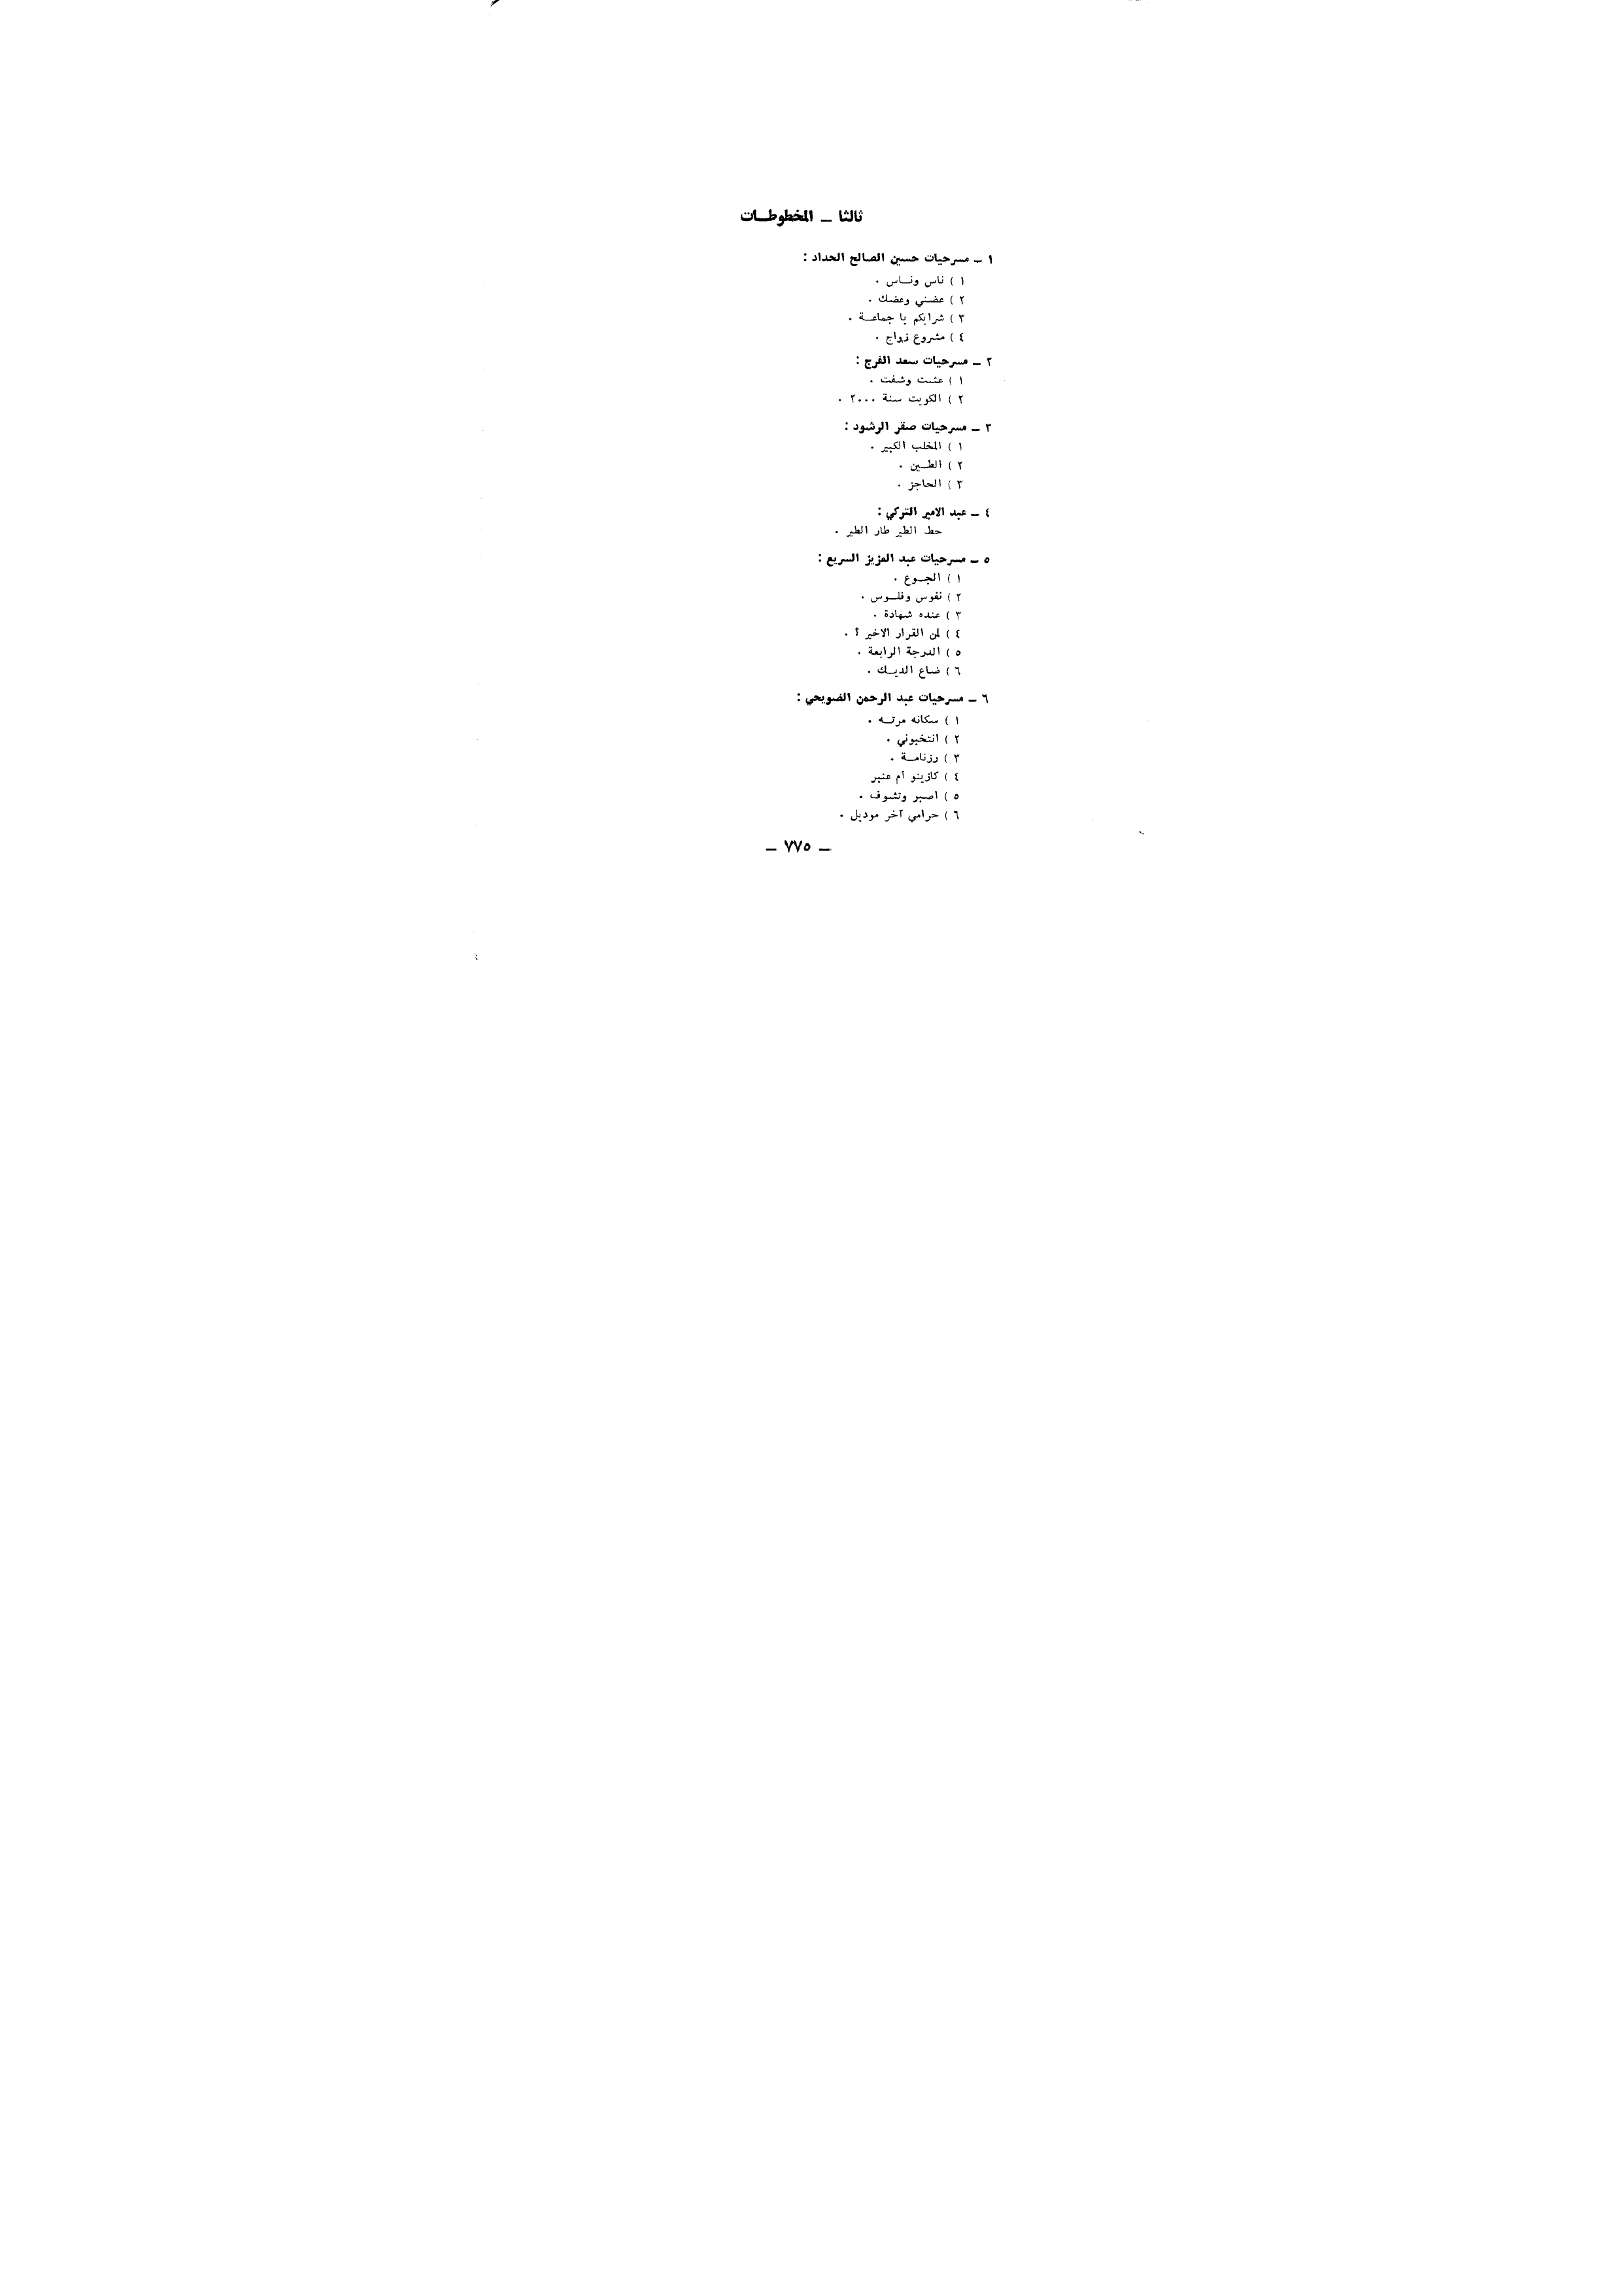 ثالثا ـ المخطوطــات
١ ـ مسرحيات حسين الصالح الحداد :
١ ) ناس ونــاس .
٢ ) عضني وعضك .
٣ ) شرايكم يا جماعــة .
٤ ) مشروع زواج .
٢ ـ مسرحيات سعد الفرج :
١ ) عشت وشفت .
٢ ) الكويت سنة ٢٠٠٠ .
٣ ـ مسرحيات صقر الرشود :
١ ) المخلب الكبير .
٢ ) الطــين .
٣ ) الحاجز .
٤ ـ عبد الامير التركي :
حط الطير طار الطير .
٥ ـ مسرحيات عبد العزيز السريع :
١ ) الجــوع .
٢ ) نفوس وفلــوس .
٣ ) عنده شهادة .
٤ ) لمن القرار الاخير ؟ .
٥ ) الدرجة الرابعة .
٦ ) ضاع الديــك .
٦ ـ مسرحيات عبد الرحمن الضويحي :
١ ) سكانه مرتــه .
٢ ) انتخبوني .
٣ ) رزنامــة .
٤ ) كازينو أم عنبر
٥ ) اصبر وتشوف .
٦ ) حرامي آخر موديل .
ـ ٧٧٥ ـ